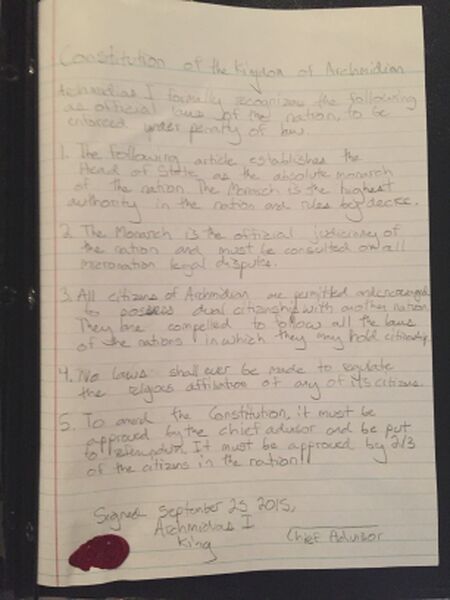 Constitution of the Kigdom of Archmidian
I formally recognize the following
as official laws of the nation, to be
enforced under penalty of law.
1. The following article establishes the
Head of State as the absolute monarch
of the nation. The Monarch is the highest
authority in the nation and rules by decree.
2. The Monarch is the official judiciary of
the nation and must be consulted on all
micronation legal disputes.
3. All citizens of Archmidian are permitted and encouraged
to possess dual citizenship with another nation.
They are compelled to follow all the laws
of the nations in which they may hold citizenship.
4. No laws shall ever be made to regulate
the religoes affiliation of any of its citizens.
5. To amend the Constitution, it must be
approved by the chief advisor and be put
to referendum. It must be approved by 2/3
of the citizens in the nation!
Signed September 25 2015,
Archmidias I
King
Chief Advisor